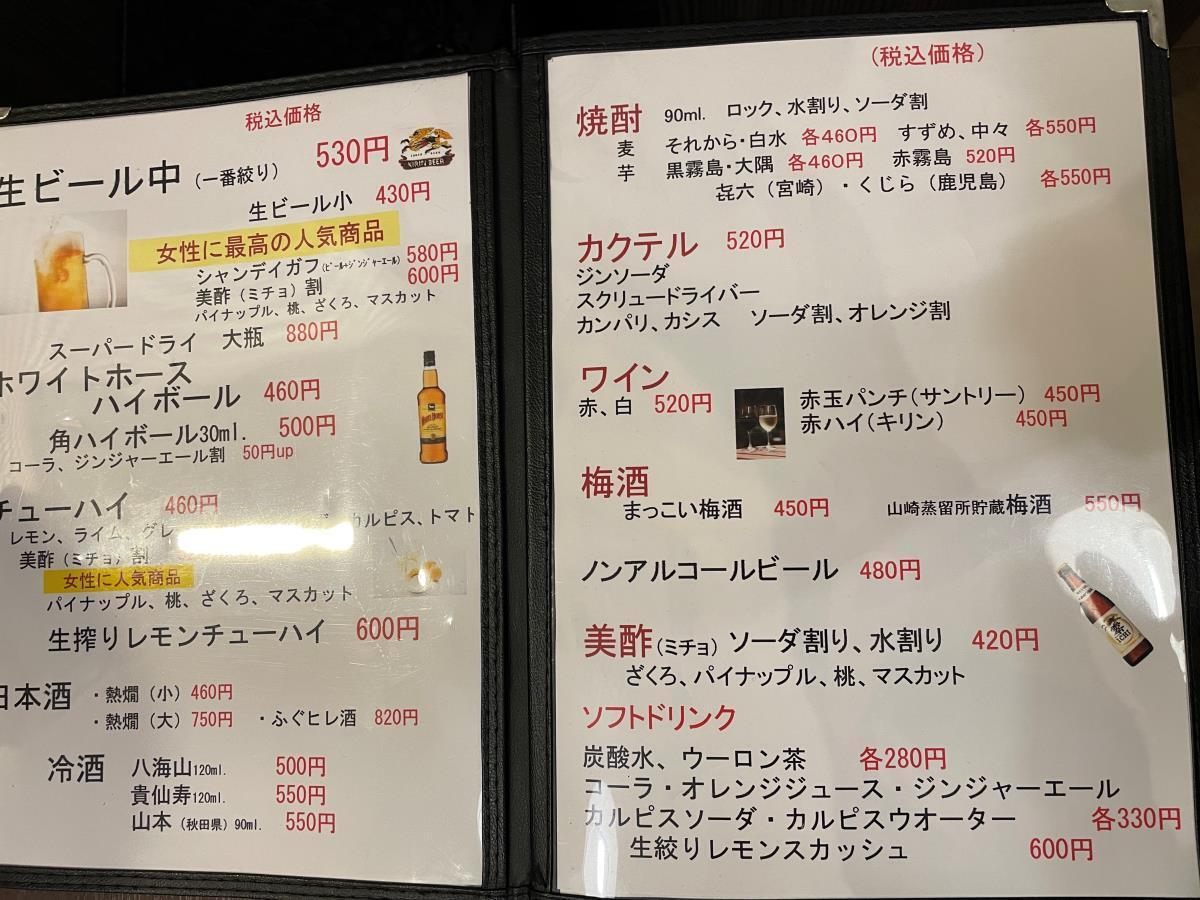 税込価格
生ビール中 (一番絞り) 530円
KIRIN BEER
生ビール小 430円
女性に最高の人気商品
シャンデイガフ(ビール+ジンジャーエール) 580円
美酢(ミチョ)割 600円
パイナップル、桃、ざくろ、マスカット
スーパードライ 大瓶 880円
ホワイトホース
ハイボール 460円
角ハイボール30ml. 500円
コーラ、ジンジャーエール割 50円up
チューハイ 460円
レモン、ライム、グレ カルピス、トマト
美酢(ミチョ)割
女性に人気商品
パイナップル、桃、ざくろ、マスカット
生搾りレモンチューハイ 600円
日本酒 ・熱燗(小) 460円
・熱燗(大) 750円 ・ふぐヒレ酒 820円
冷酒 八海山120ml. 500円
貴仙寿120ml. 550円
山本(秋田県)90ml. 550円
(税込価格)
焼酎 90ml. ロック、水割り、ソーダ割
麦 それから・白水 各460円 すずめ、中々 各550円
芋 黒霧島・大隅 各460円 赤霧島 520円
㐂六(宮崎)・くじら(鹿児島) 各550円
カクテル 520円
ジンソーダ
スクリュードライバー
カンパリ、カシス ソーダ割、オレンジ割
ワイン
赤、白 520円
赤玉パンチ(サントリー) 450円
赤ハイ(キリン) 450円
梅酒
まっこい梅酒 450円 山崎蒸留所貯蔵梅酒 550円
ノンアルコールビール 480円
美酢(ミチョ) ソーダ割り、水割り 420円
ざくろ、パイナップル、桃、マスカット
ソフトドリンク
炭酸水、ウーロン茶 各280円
コーラ・オレンジジュース・ジンジャーエール
カルピスソーダ・カルピスウオーター 各330円
生絞りレモンスカッシュ 600円